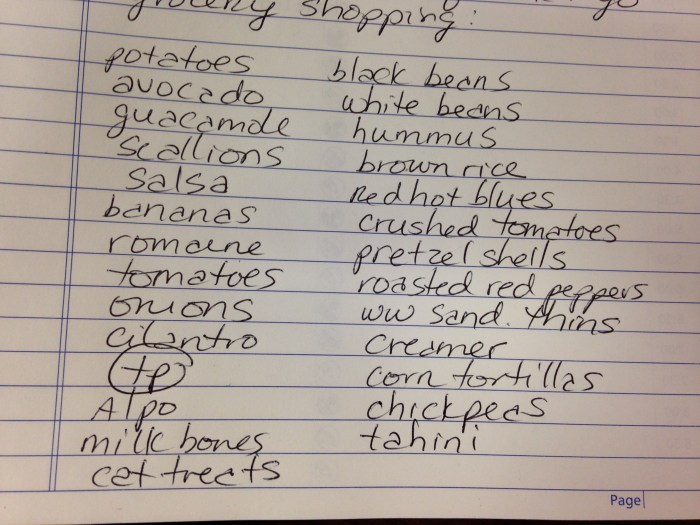 grocery shopping:
go
potatoes
avocado
guacamole
scallions
salsa
bananas
romaine
tomatoes
onions
cilantro
tp
Alpo
milk bones
cat treats
black beans
white beans
hummus
brown rice
Red hot blues
crushed tomatoes
pretzel shells
roasted red peppers
ww sand. thins
creamer
corn tortillas
chickpeas
tahini
Page